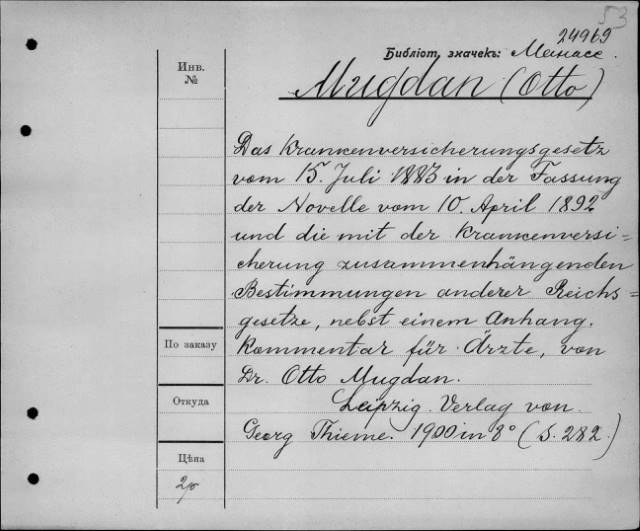 53
24969
Инв. №
Библіот. значекъ: Манассе.
Mugdan (Otto)
Das Krankenversicherungsgesetz
vom 15. Juli 1883 in der Fassung
der Novelle vom 10. April 1892
und die mit der Krankenversi=
cherung zusammenhängenden
Bestimmungen anderer Reichs=
gesetze, nebst einem Anhang.
По заказу
Kommentar für Ärzte, von
Dr. Otto Mugdan.
Откуда
Leipzig. Verlag von
Georg Thieme. 1900 in 8° (S. 282.)
Цѣна